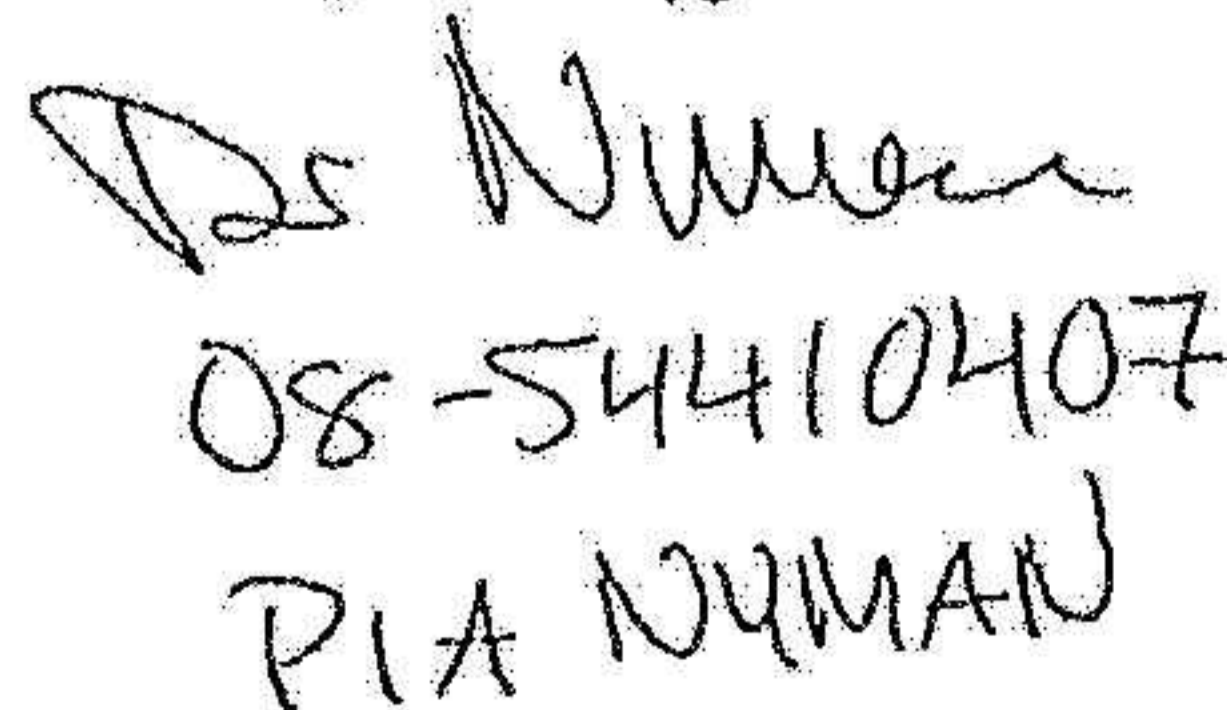 Nyman
08-54410407
PIA NYMAN